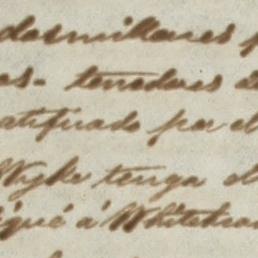 dosmillones p
os- tenedores de
atificado por el
Wyke tenga el
iqué á Whitehea